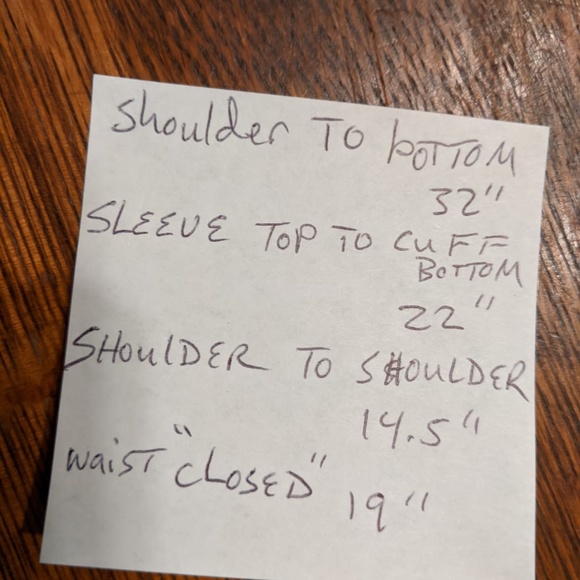 Shoulder TO bOTTOM
32"
SLEEVE TOP TO CUFF
BOTTOM
22"
SHOULDER TO SHOULDER
14.5"
waist "CLOSED"
19"